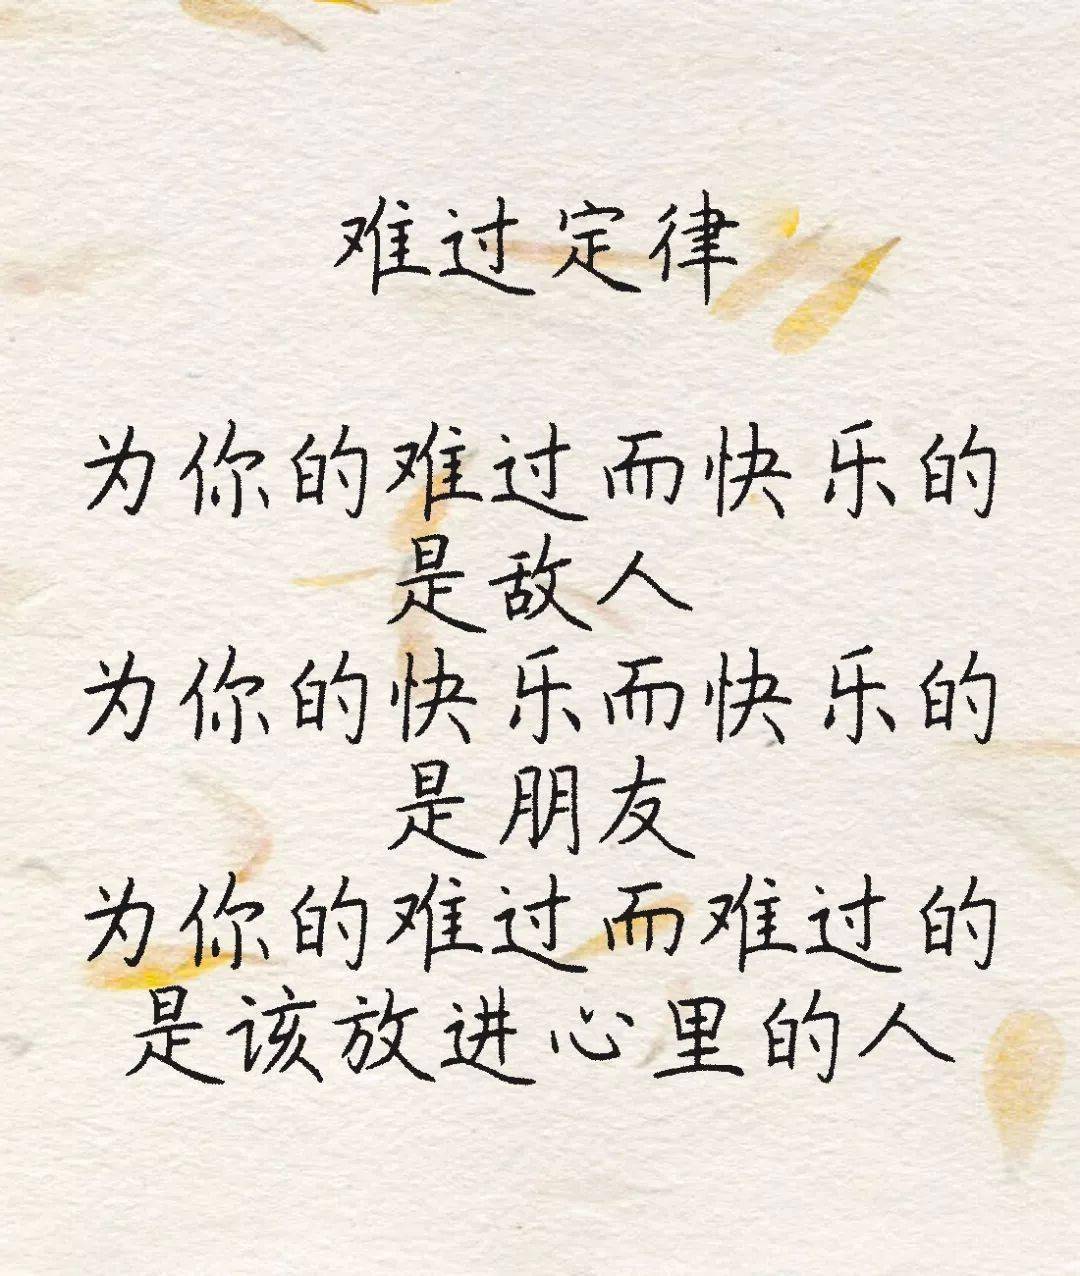 难过定律
为你的难过而快乐的
是敌人
为你的快乐而快乐的
是朋友
为你的难过而难过的
是该放进心里的人